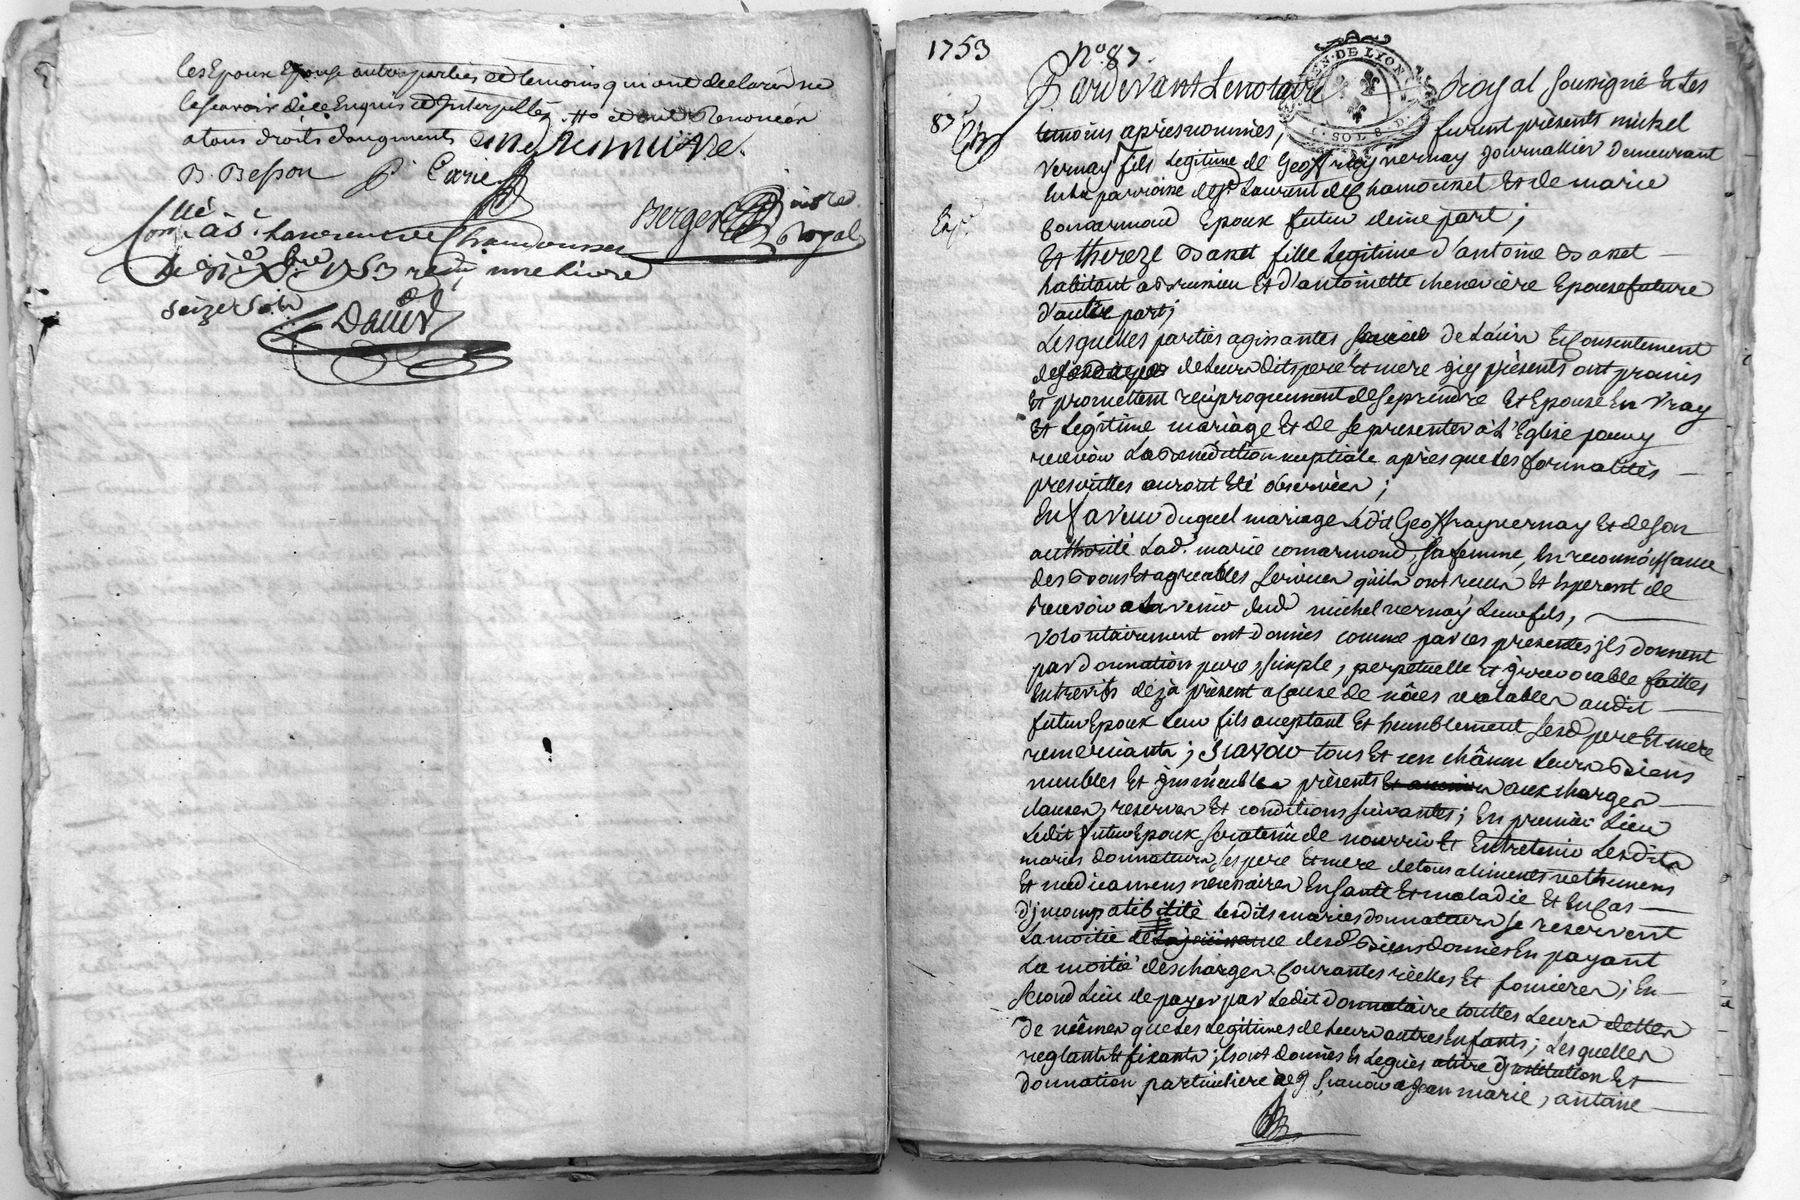 les Epoux Epouse autres parties et temoins qui ont declarés ne
le scavoir de ce Enquis et Interpellés et ont Renoncér
a tous droits daugments
B. Besson
Berger
Royal
Con.lé a St. Laurent de Chamousset
1753 une livre
seize sols
David
1753
N.o 87.
GEN. DE LYON
SOL 8. D
Pardevant Le notaire Royal soussigné Et Les
temoins apres nommés, furent présents michel
vernay fils Legitime de Geoffray vernay journallier Demeurant
En la parroisse de St Laurent de Chamousset Et de marie
Comarmond Epoux futur d'une part;
Et thereze Banet fille Legitime d'antoine Banet
habitant a Brussieu Et d'antoinette chenevière Epouse future
d'autre part;
Lesquelles parties agissantes de L'avis Et Consentement
de Leurs dits pere Et mere icy présents ont promis
Et promettent réciproquement de se prendre Et Epouser En vray
Et Légitime mariage Et de se presenter à L'Eglise pour y
recevoir La Benediction nuptiale apres que Les formalités
prescrittes auront Eté observées;
En faveur duquel mariage Ledit Geoffray vernay Et de son
authorité Lad. marie comarmond, sa femme, En reconnoissance
des Bons Et agreables services qu'ils ont reçus Et Esperent de
recevoir a L'avenir dud michel vernay Leur fils,
volontairement ont donnés comme par ces presentes ils donnent
par donnation pure, simple, perpetuelle Et irrevocable faittes
Entrevifs déja présent a Cause de nôces valables audit
futur Epoux Leur fils aceptant Et humblement sesd pere Et mere
remerciants; scavoir tous Et un châcun Leurs Biens
meubles Et immeubles présents Et avenirs aux charges
clauses, reserves Et conditions suivantes; En premier Lieu
Ledit futur Epoux sera tenû de nourrir Et Entretenir Lesdits
mariés donnateurs ses pere Et mere de tous aliments vettements
Et medicaments nécessaires En santé Et maladie Et En Cas
d'jncompatibilité Lesdits mariés donnateurs se reservent
La moitié de La jouissance desd Biens donnés En payant
La moitié des charges Courantes réelles Et foncieres; En
second Lieu de payer par Ledit donnataire touttes Leurs dettes
de mêmes que Les Legitimes de Leurs autres Enfants; Lesquelles
reglants Et fixants, ils ont donnés Et Legués a titre d'jnstitution Et
donnation particuliere scavoir a Jean marie, antoine